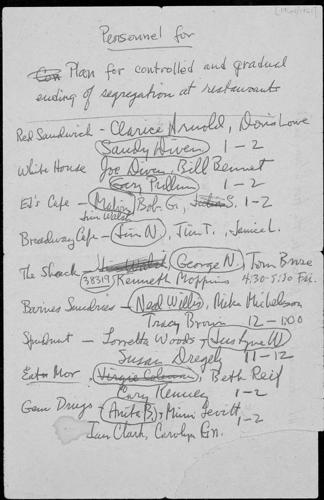 Personnel for
Con Plan for controlled and gradual
ending of segregation at restaurants
Red Sandwich - Clarice Arnold, Doris Lowe
Sandy Diven 1-2
White House Joe Diven, Bill Bennet
Gary Pullum 1-2
Ed's Cafe - Malvin, Bob G., S. 1-2
Jim Walsh
Broadway Cafe - Jim N, Jim T., Janice L.
The Shack - George N., Tom Bruce
38319 Kenneth Moppins 4:30-5:30 Fri.
Barnes Sundries - Ned Willis, Mickelson
Tracy Brown 12-1:00
Spudnut - Loretta Woods, Justyne W
Susan Dregely 11-12
Eat Mor, Virgie Coleman, Beth Reif
Cary Kenney 1-2
Gem Drugs - Anita B., Mimi Levitt
1-2
Ian Clark, Carolyn Gn.